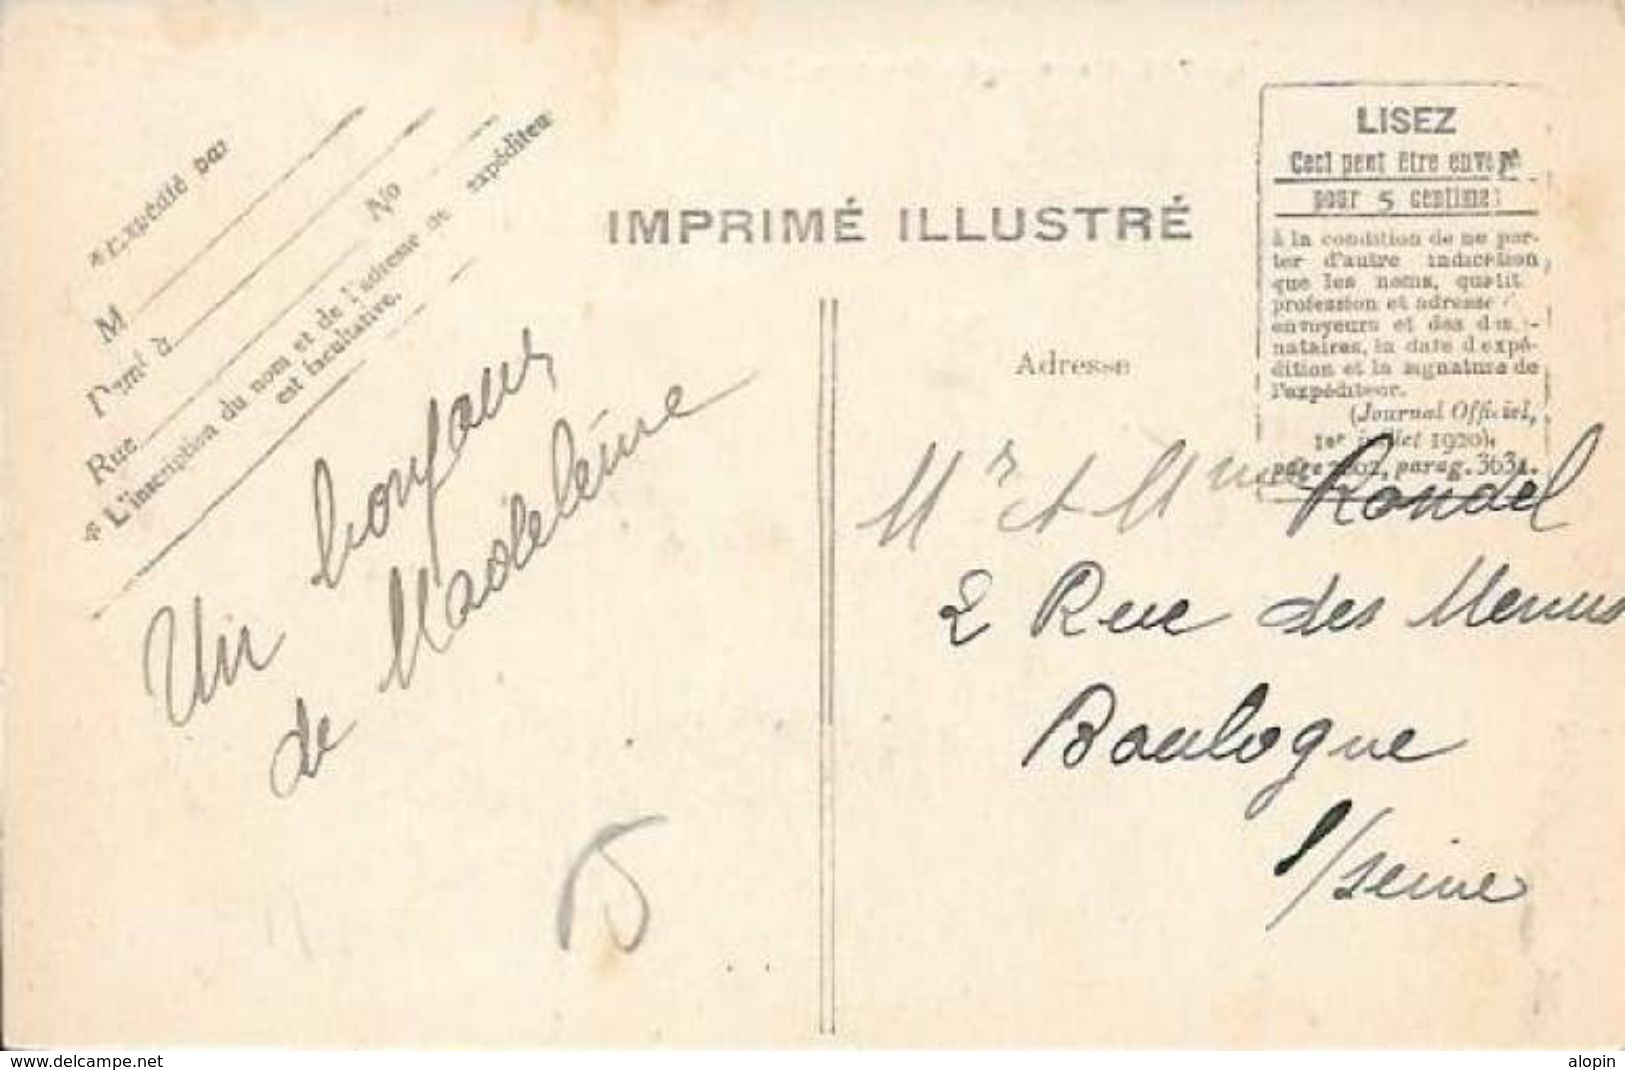 * Expédié par
M
Domt à No
Rue
* L'inscription du nom et de l'adresse de expéditeur
est facultative.
Un bonjour
de Madeleine
IMPRIMÉ ILLUSTRÉ
Adresse
LISEZ
Ceci peut être envoyé
pour 5 centimes
à la condition de ne por-
ter d'autre indication
que les noms, qualit
profession et adresse
envoyeurs et des des-
nataires, la date d'expé-
dition et la signature de
l'expéditeur.
(Journal Officiel,
1er juillet 1920),
page parag. 3631.
Mr et Mme Rondel
2 Rue des Menus
Boulogne
s/seine
www.delcampe.net
alopin